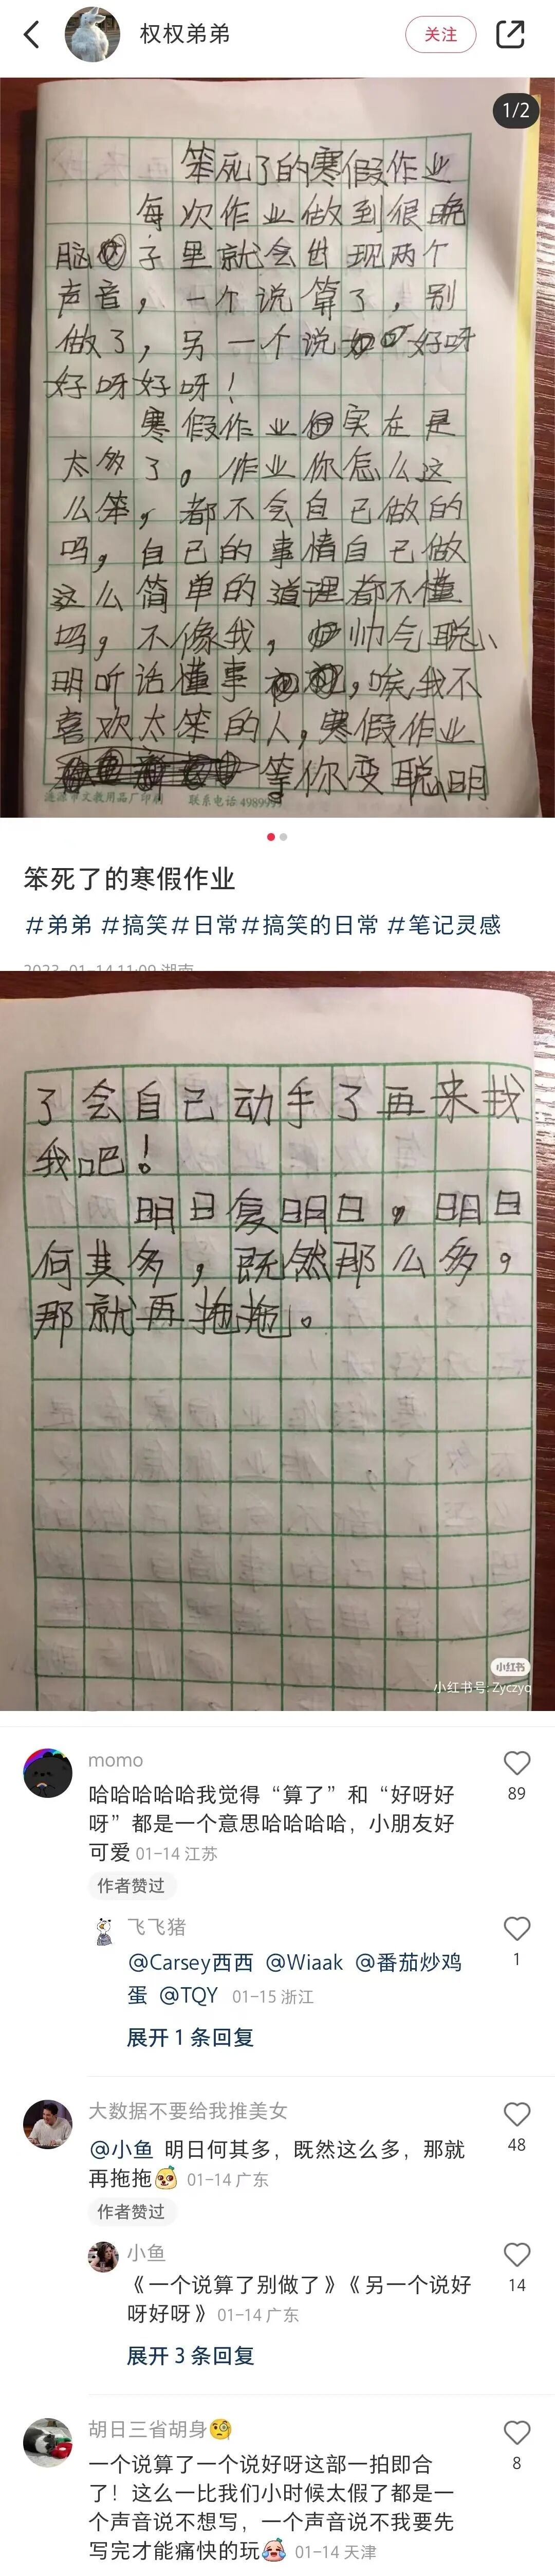 权权弟弟
关注
1/2
笨死了的寒假作业
每次作业做到很晚
脑子里就会出现两个
声音，一个说算了，别
做了，另一个说好呀
好呀好呀！
寒假作业实在是
太多了。作业你怎么这
么笨，都不会自己做的
吗，自己的事情自己做
这么简单的道理都不懂
吗，不像我，帅气聪
明听话懂事，唉我不
喜欢太笨的人，寒假作业
等你变聪明
涟源市文教用品厂印刷 联系电话4989999
笨死了的寒假作业
#弟弟 #搞笑#日常#搞笑的日常 #笔记灵感
2023-01-14 11:09 湖南
了会自己动手了再来找
我吧！
明日复明日，明日
何其多，既然那么多，
那就再拖拖。
小红书
小红书号: Zyczyq
momo
哈哈哈哈哈我觉得“算了”和“好呀好
呀”都是一个意思哈哈哈哈，小朋友好
可爱 01-14 江苏
89
作者赞过
飞飞猪
@Carsey西西 @Wiaak @番茄炒鸡
蛋 @TQY 01-15 浙江
1
展开 1 条回复
大数据不要给我推美女
@小鱼 明日何其多，既然这么多，那就
再拖拖 01-14 广东
48
作者赞过
小鱼
《一个说算了别做了》《另一个说好
呀好呀》 01-14 广东
14
展开 3 条回复
胡日三省胡身🧐
一个说算了一个说好呀这部一拍即合
了！这么一比我们小时候太假了都是一
个声音说不想写，一个声音说不我要先
写完才能痛快的玩 01-14 天津
8